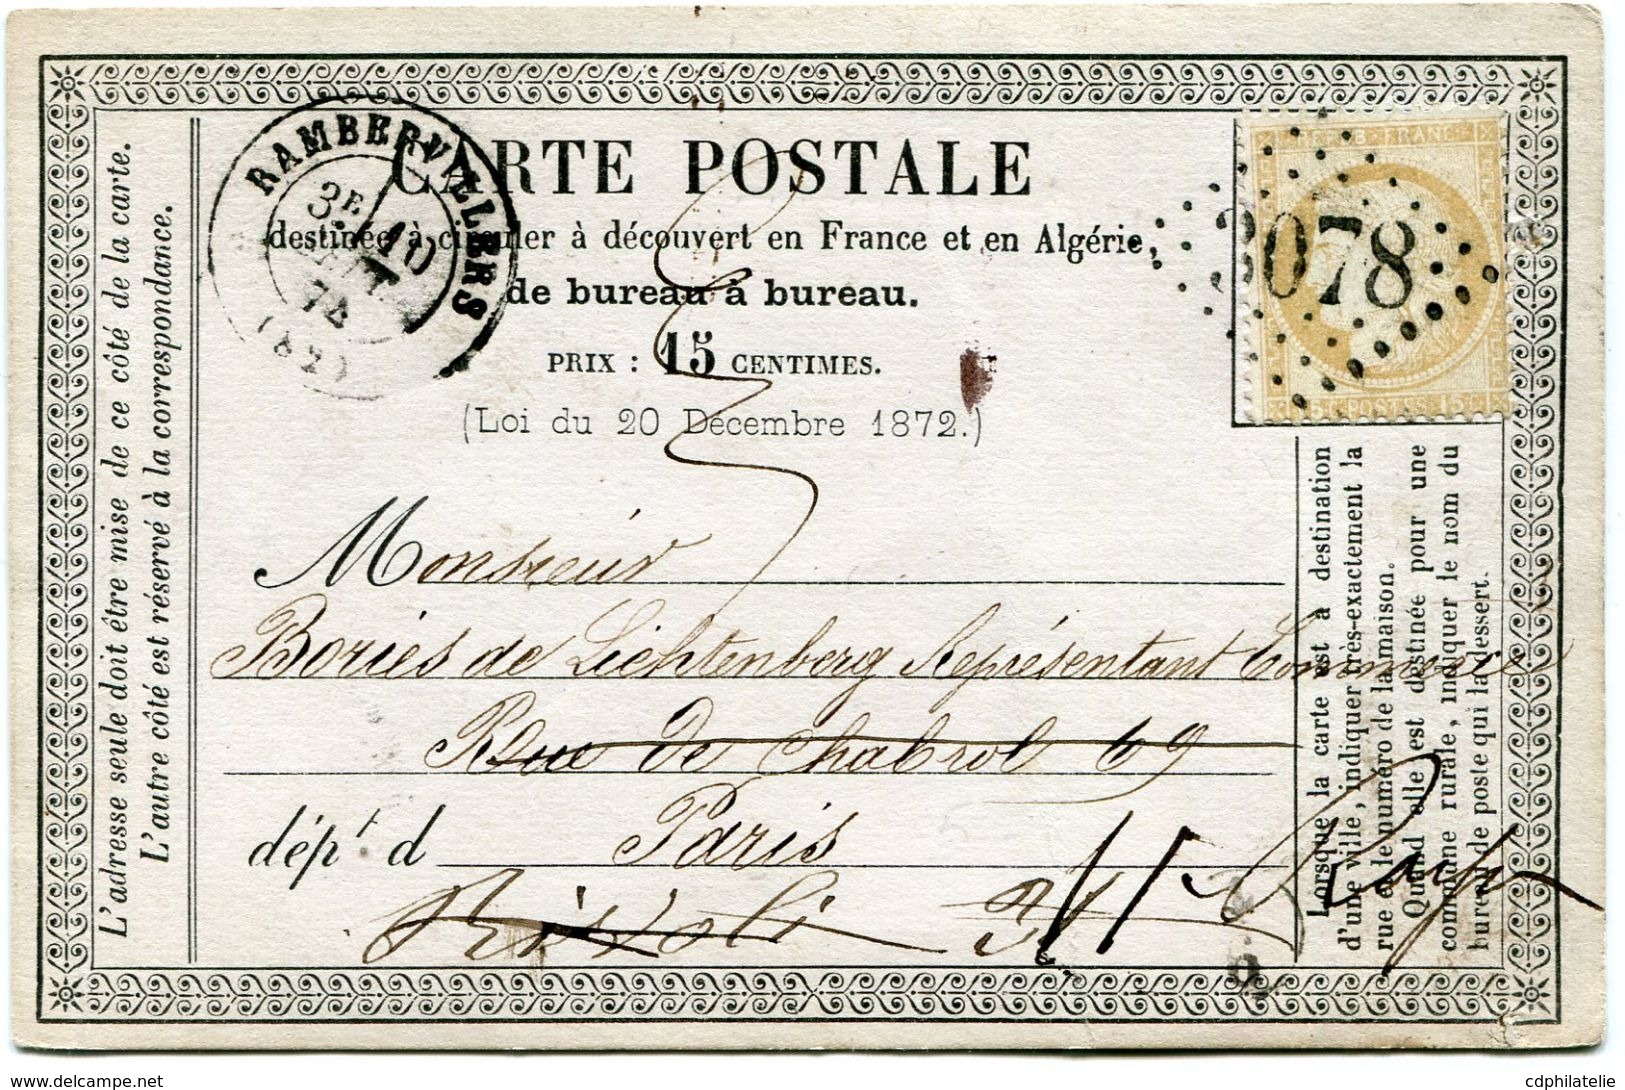 CARTE POSTALE
destinée à circuler à découvert en France et en Algérie,
de bureau à bureau.
PRIX : 15 CENTIMES.
(Loi du 20 Décembre 1872.)
RAMBERVILLERS
3E
10
74
(82)
2078
POSTES
Monsieur
Boriés de Lichtenberg Représentant Commerce
Rue de Chabrol 69
dépt d Paris
Rivoli
L'adresse seule doit être mise de ce côté de la carte.
L'autre côté est réservé à la correspondance.
Lorsque la carte est à destination
d'une ville, indiquer très-exactement la
rue et le numéro de la maison.
Quand elle est destinée pour une
commune rurale, indiquer le nom du
bureau de poste qui la dessert.
www.delcampe.net
cdphilatelie